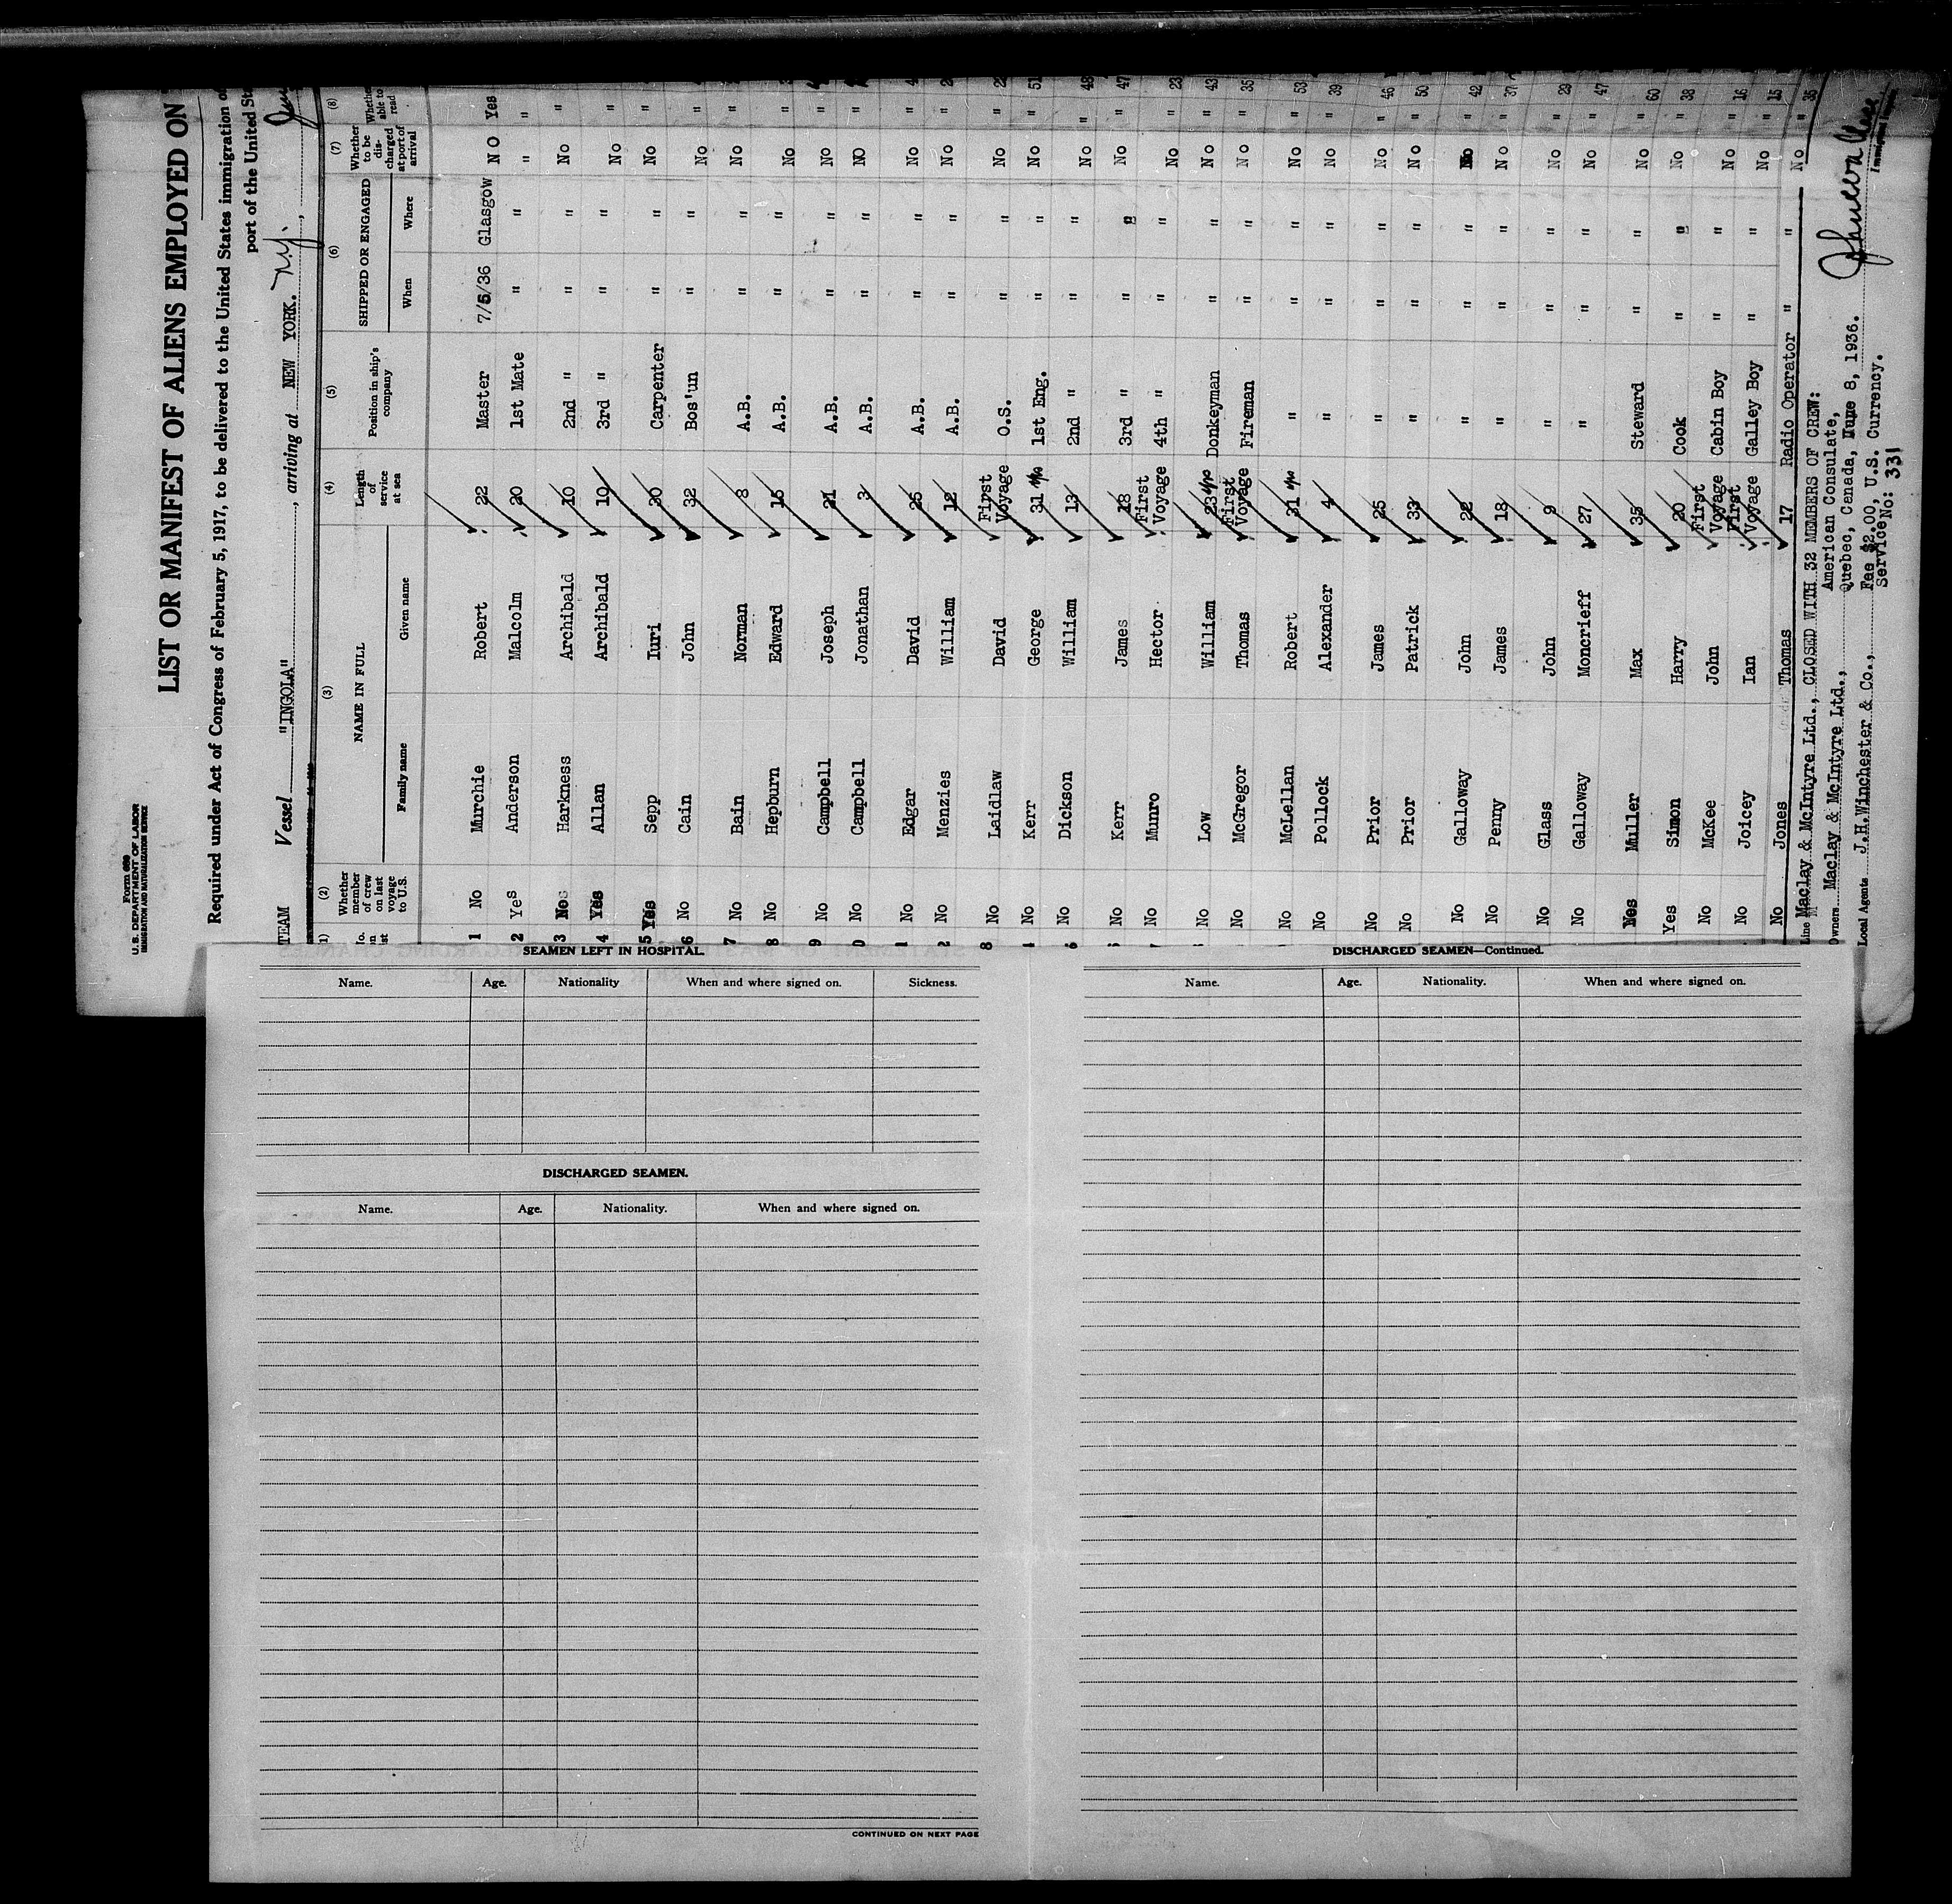 Form 689
U. S. DEPARTMENT OF LABOR
IMMIGRATION AND NATURALIZATION SERVICE
LIST OR MANIFEST OF ALIENS EMPLOYED ON
Required under Act of Congress of February 5, 1917, to be delivered to the United States immigration of
port of the United St
TEAM Vessel "INGOLA", arriving at NEW YORK. N.Y.,
(2) (3) (4) (5) (6) (7) (8)
Whether member of crew on last voyage to U.S. NAME IN FULL Length of service at sea Position in ship's company SHIPPED OR ENGAGED Whether to be discharged at port of arrival Whether able to read
Family name Given name When Where
1 No Murchie Robert 22 Master 7/5/36 Glasgow NO Yes
2 Yes Anderson Malcolm 20 1st Mate " " " "
3 Harkness Archibald 10 2nd " " " No "
4 Yes Allan Archibald 10 3rd " " " No "
5 Yes Sepp Iuri 30 Carpenter " " No "
6 No Cain John 32 Bos'un " " No "
7 No Bain Norman 8 A.B. " " No "
8 No Hepburn Edward 15 A.B. " " No "
9 No Campbell Joseph 21 A.B. " " No "
0 No Campbell Jonathan 3 A.B. " " NO "
1 No Edgar David 25 A.B. " " No "
2 No Menzies William 12 A.B. " " No "
No Laidlaw David First Voyage O.S. " " No "
No Kerr George 31 1st Eng. " " No " 51
No Dickson William 13 2nd " " " No " 48
No Kerr James 18 3rd " " " No " 47
No Munro Hector First Voyage 4th " " " No " 23
No Low William 23 Donkeyman " " No " 43
No McGregor Thomas First Voyage Fireman " " No " 35
No McLellan Robert 31 " " " No " 53
No Pollock Alexander 4 " " " No " 39
No Prior James 25 " " " No " 46
No Prior Patrick 33 " " " No " 50
No Galloway John 22 " " " No " 42
No Penny James 18 " " " No " 37
No Glass John 9 " " " No " 29
No Galloway Moncrieff 27 " " " No " 47
Muller Max 35 Steward " " No " 60
Yes Simon Harry 20 Cook " " No " 38
No McKee John First Voyage Cabin Boy " " No " 16
No Joicey Ian First Voyage Galley Boy " " No " 15
No Jones Thomas 17 Radio Operator " " No " 36
Line Maclay & McIntyre Ltd., CLOSED WITH 32 MEMBERS OF CREW:
American Consulate,
Owners Maclay & McIntyre Ltd., Quebec, Canada, June 8, 1936.
Local Agents J.H.Winchester & Co., Fee $2.00, U.S. Currency.
Service No: 331
Immigrant Inspector
SEAMEN LEFT IN HOSPITAL.
Name. Age. Nationality When and where signed on. Sickness.
DISCHARGED SEAMEN.
Name. Age. Nationality. When and where signed on.
CONTINUED ON NEXT PAGE
DISCHARGED SEAMEN—Continued.
Name. Age. Nationality. When and where signed on.